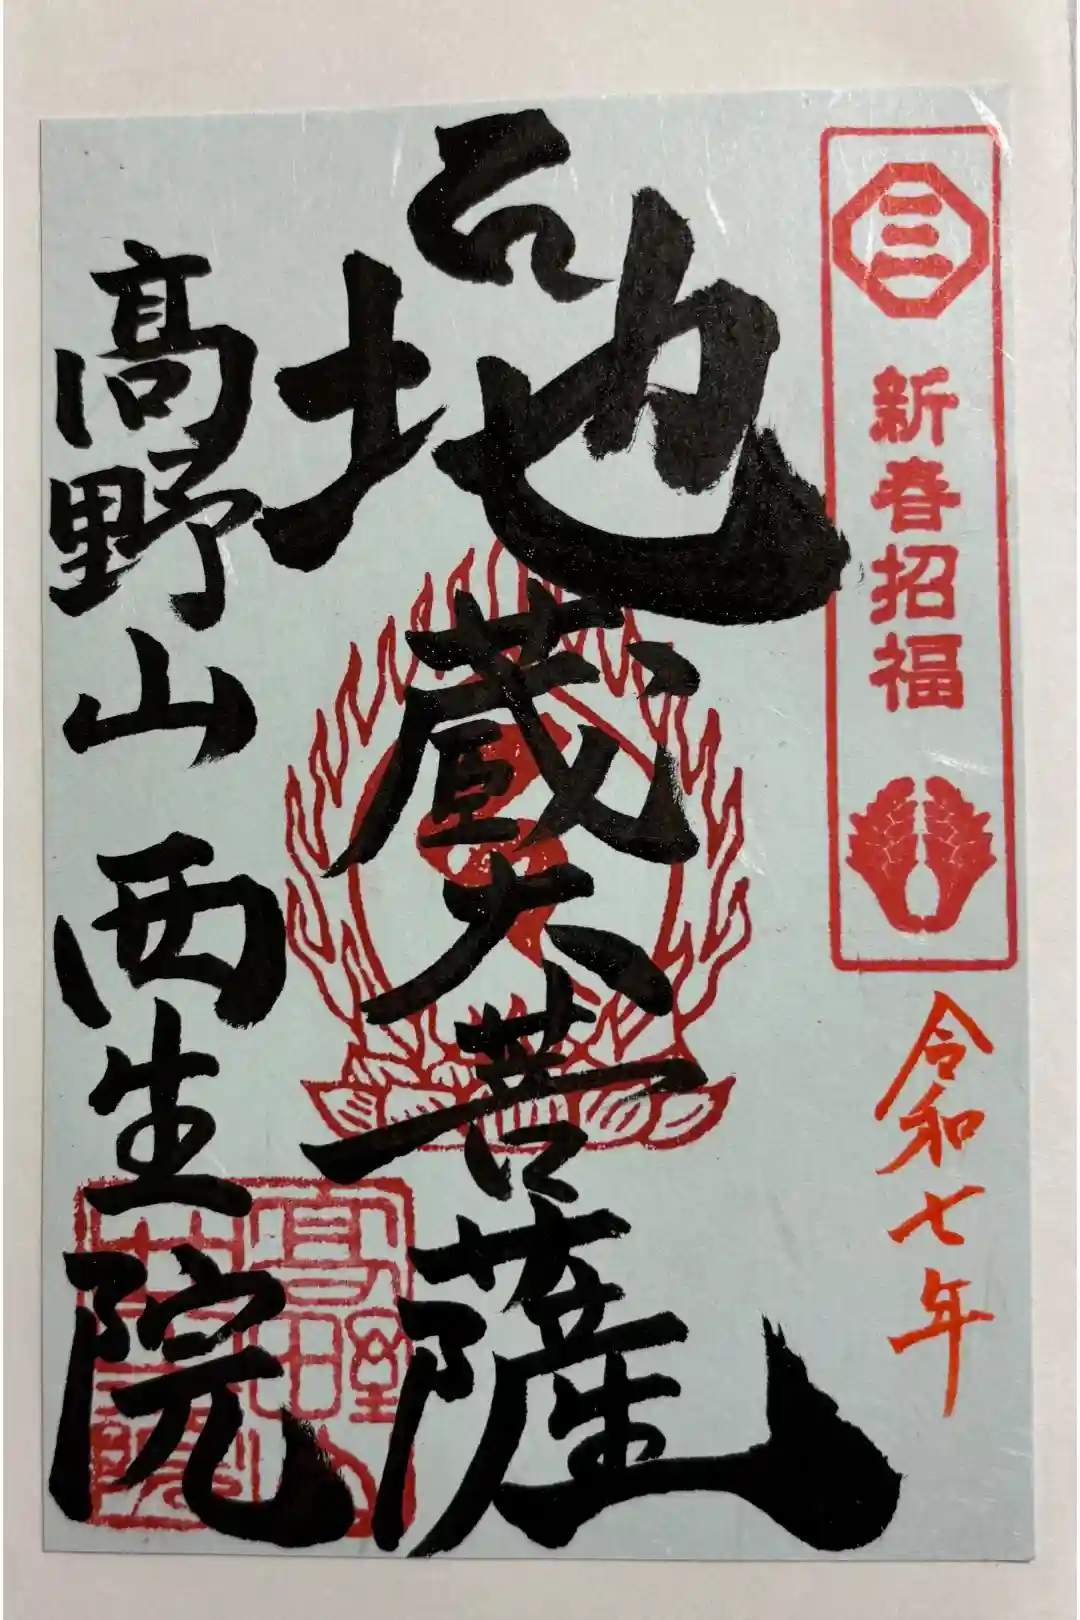 三
新春招福
令和七年
地蔵大菩薩
高野山 西生院